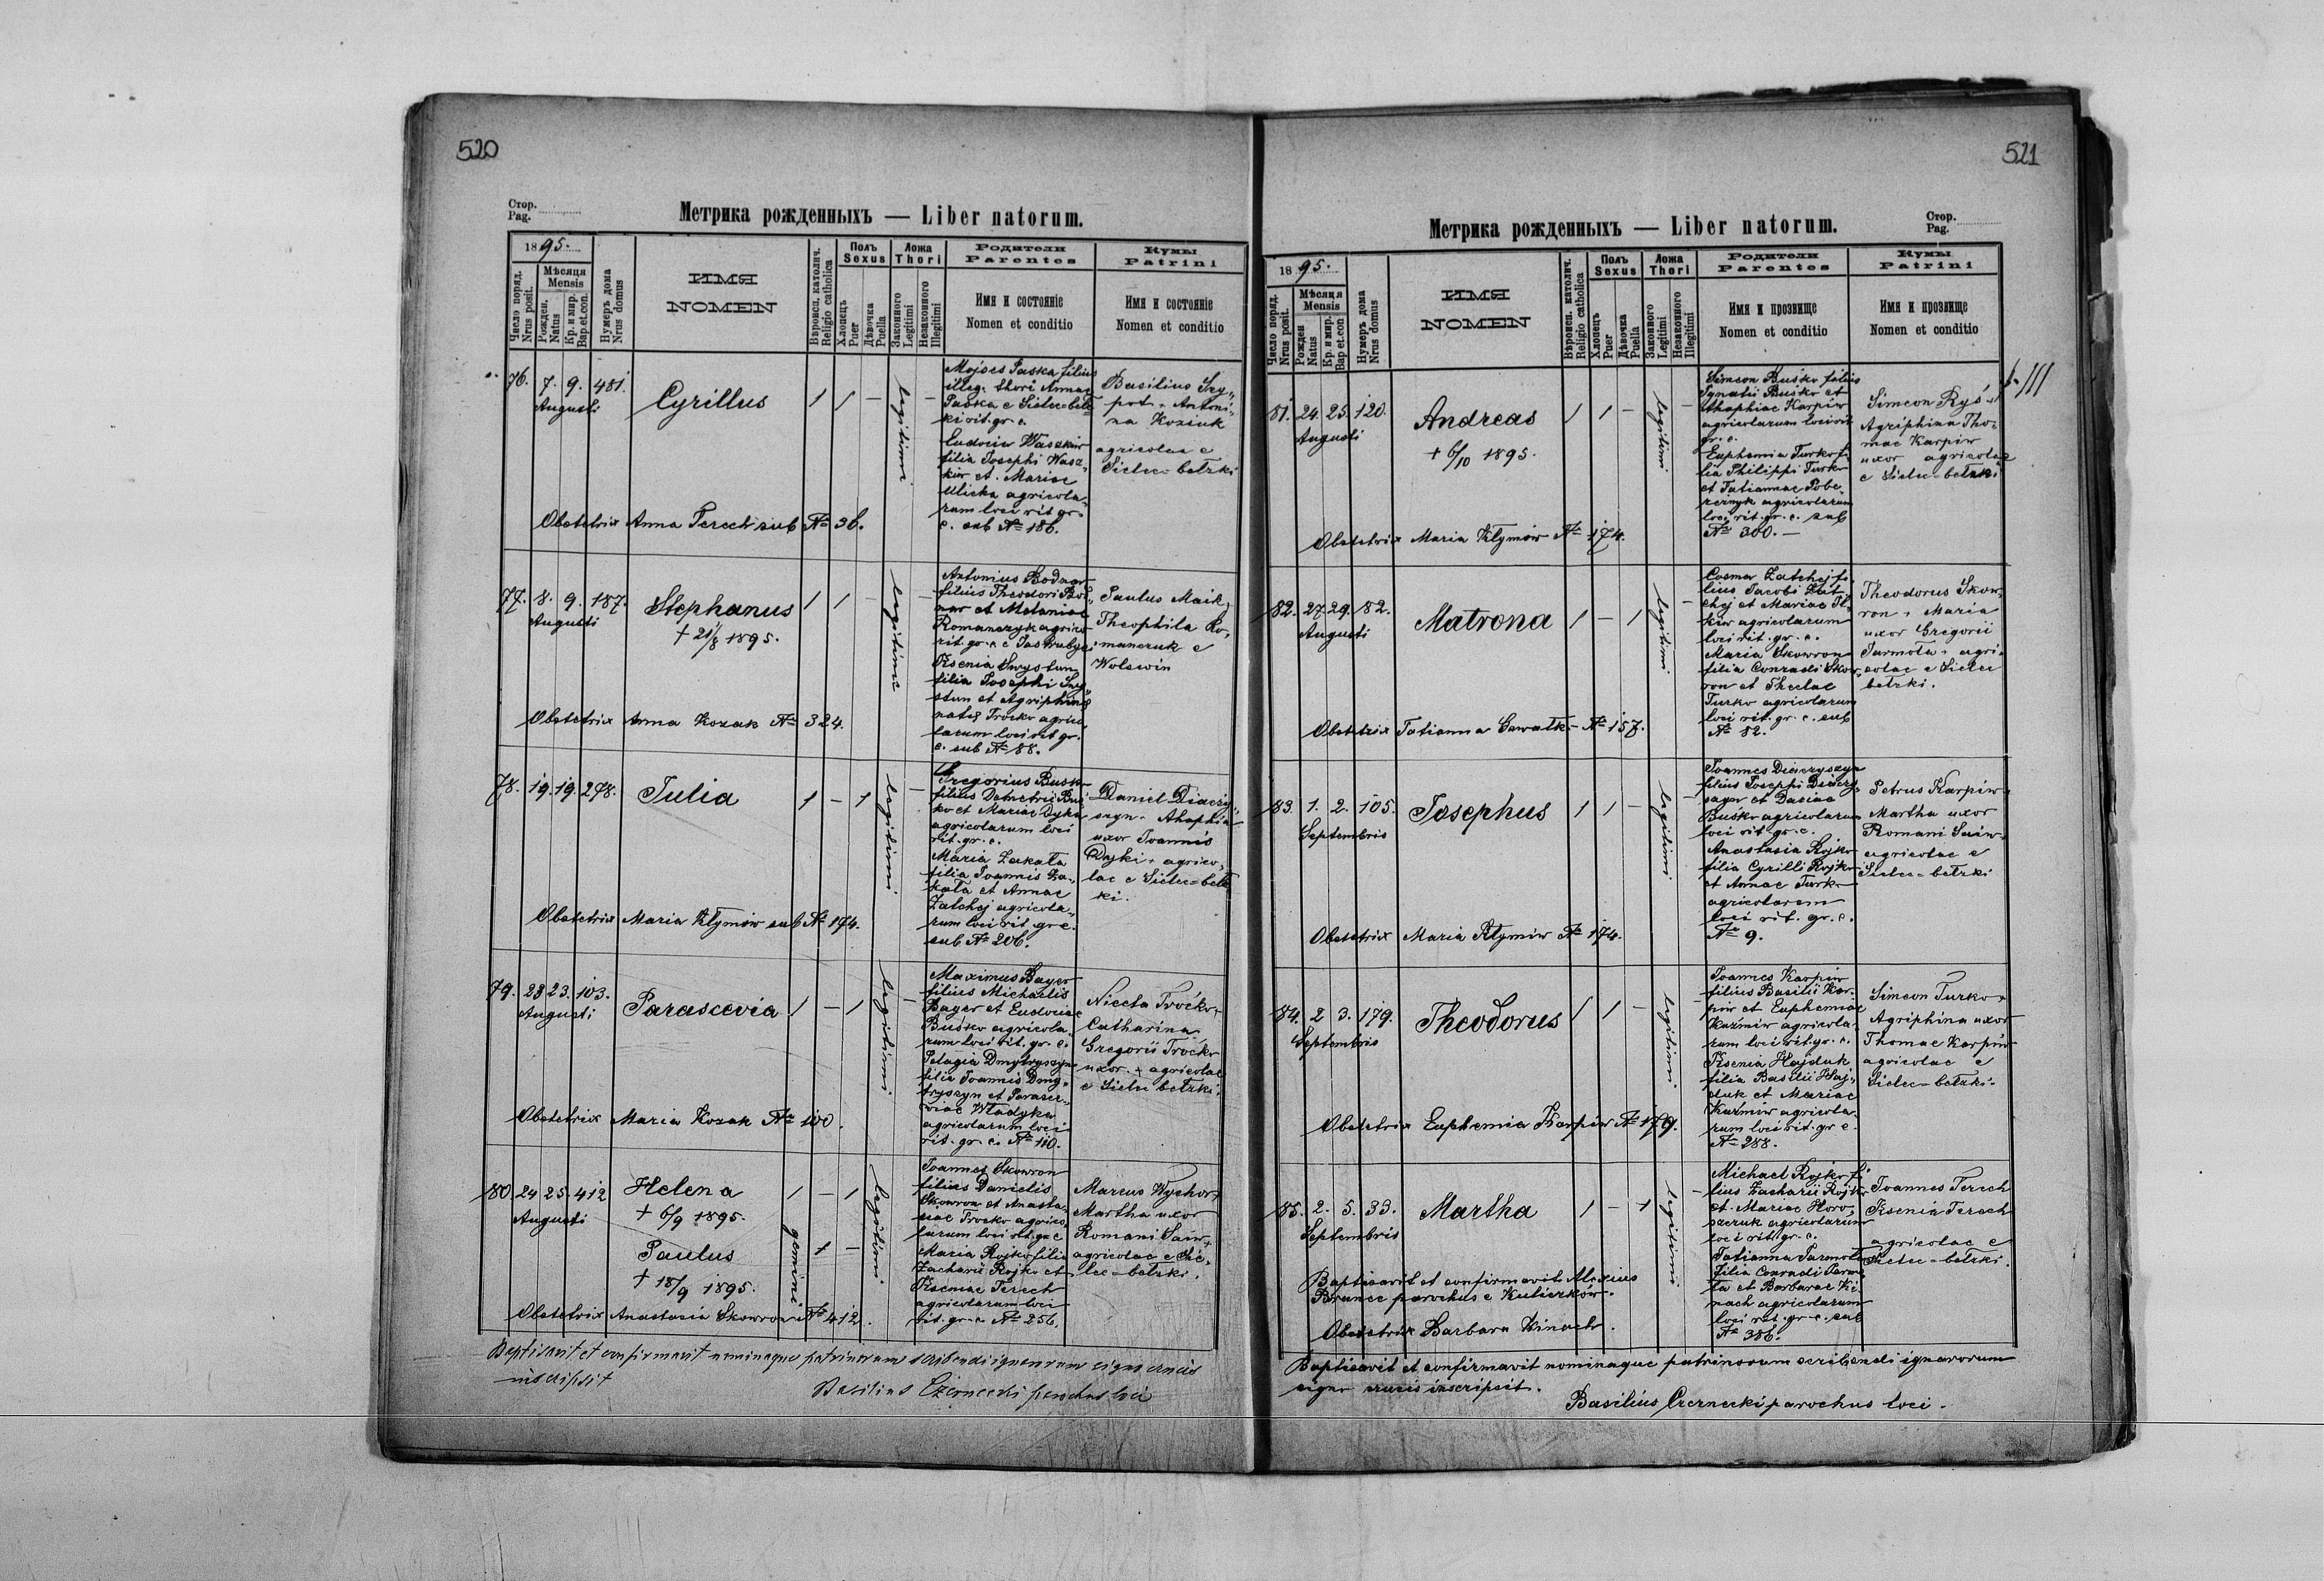 520
Стор.
Pag.
Метрика рожденныхъ — Liber natorum.
1895.
Число поряд.
Nrus posit.
Мѣсяця
Mensis
Рожден.
Natus
Кр. и мир.
Bap.et.con.
Нумеръ дома
Nrus domus
ИМЯ
NOMEN
Вѣроисп. католич.
Religio catholica
Полъ
Sexus
Хлопець
Puer
Дѣвочка
Puella
Ложа
Thori
Законного
Legitimi
Незаконного
Illegitimi
Родители
Parentes
Имя и состоянie
Nomen et conditio
Кумы
Patrini
Имя и состоянie
Nomen et conditio
76. 7. 9. 481.
Augusti
Cyrillus
1 1 -
legitimi
Mojses Paska filius
illeg. thori Annae
Paska e Sielec=betz
ki rit. gr. c.
Eudocia Waszkiw
filia Josephi Wasz„
kiw et Mariae
Ulicka agricola„
rum loci rit gr.
c. sub № 186.
Basilius Szy„
pot + Antoni„
na Koziuk
agricolae e
Sielec=betzki
Obstetrix Anna Terech sub № 36.
77. 8. 9. 187.
Augusti
Stephanus
+ 21/8 1895.
1 1 -
legitimi
Antonius Bodnar
filius Theodori Bod„
nar et Melaniae
Romanczyk agrico
rit. gr. c. e Jastrubyci
Ksenia Swystun
filia Josephi Swy„
stun et Agriphinae
natae Trocko agrico
larum loci rit gr.
c. sub № 88.
Paulus Maik +
Theophila Ro„
manczuk e
Wolswin
Obstetrix Anna Kozak № 324.
78. 19. 19. 278.
Julia
1 - 1
legitimi
Gregorius Busk
filius Demetrii Bus
ko et Mariae Dyka
agricolarum loci
rit. gr. c.
Maria Zakała
filia Joannis Za„
kała et Annae
Zatchej agricola„
rum loci rit. gr c.
sub № 206.
Daniel Diaczy„
szyn + Ahaphia
uxor Joannis
Dajki + agrico„
lae e Sielec=betz
ki.
Obstetrix Maria Kłymiw sub № 174.
79. 23 23. 103.
Augusti
Parascevia
1 - 1
legitimi
Maximus Bayer
filius Michaelis
Bayer et Eudociae
Buśko agricola„
rum loci rit. gr. c.
Pelagia Dmytryszyn
filia Joannis Dmy„
tryszyn et Parasce„
viae Władyka
agricolarum loci
rit. gr. c. № 110.
Niceta Troćko +
Catharina
Gregorii Troćko
uxor. + agricolae
e Sielec betzki.
Obstetrix Maria Kozak № 100.
80 24 25. 412
Augusti
Helena
+ 6/9 1895.
Paulus
+ 18/9 1895.
1 - 1
+ -
gemini
legitimi
Joannes Skowron
filius Danielis
Skowron et Anasta„
siae Trocko agrico„
larum loci rit. gr. c
Maria Rojko filia
Zacharii Rojko et
Kseniae Terech
agricolarum loci
rit. gr. c. № 256.
Marcus Wychor +
Martha uxor
Romani Saiw +
agricolae e Sie„
lec=betzki.
Obstetrix Anastasia Skowron № 412.
Baptisavit et confirmavit nominaque patrinorum scribendi ignarorum signo crucis
inscripsit
Basilius Czernecki parochus loci
521
Стор.
Pag.
Метрика рожденныхъ — Liber natorum.
1895.
Число поряд.
Nrus posit.
Мѣсяця
Mensis
Рожден
Natus
Кр. и мир.
Bap et.con
Нумеръ дома
Nrus domus
ИМЯ
NOMEN
Вѣроисп. католич.
Religio catholica
Полъ
Sexus
Хлопець
Puer
Дѣвочка
Puella
Ложа
Thori
Законного
Legitimi
Незаконного
Illegitimi
Родители
Parentes
Имя и прозвище
Nomen et conditio
Кумы
Patrini
Имя и прозвище
Nomen et conditio
81. 24. 25. 120.
Augusti
Andreas
+ 6/10 1895.
1 1 -
legitimi
Simeon Buśko filius
Ignatii Buśko et
Ahaphiae Karpiw
agricolarum loci rit
gr. c.
Euphemia Turko fi„
lia Philippi Turko
et Tatiannae Pobe„
reznyk agricolarum
loci rit. gr. c. sub
№ 300. —
Simeon Ryś +
Agriphina Tho„
mae Karpiw
uxor agricolae
e Sielec=betzki
Obstetrix Maria Kłymiw № 174.
82. 27. 29. 182.
Augusti
Matrona
1 - 1
legitimi
Cosma Zatchej fi„
lius Jacobi Zat„
chej et Mariae Il„
kiw agricolarum
loci rit. gr. c.
Maria Skowron
filia Conradi Skow„
ron et Theclae
Turko agricolarum
loci rit. gr. c. sub
№ 82.
Theodorus Skow„
ron + Maria
uxor Gregorii
Jarmola + agri„
colae e Sielec
betzki.
Obstetrix Tatianna Gawałk- № 157.
83. 1. 2. 105.
Septembris
Josephus
1 1 -
legitimi
Joannes Diaczyszyn
filius Josephi Diaczy„
szyn et Daciae
Buśko agricolarum
loci rit. gr. c.
Anastasia Rojko
filia Cyrilli Rojko
et Annae Turko
agricolarum
loci rit. gr. c.
№ 9.
Petrus Karpiw +
Martha uxor
Romani Saiw +
agricolae e
Sielec=betzki
Obstetrix Maria Kłymiw № 174.
84. 2 3. 179.
Septembris
Theodorus
1 1 -
legitimi
Joannes Karpiw
filius Basilii Kar„
piw et Euphemiae
Kuźmiw agricola„
rum loci rit. gr. c.
Ksenia Hajduk
filia Basilii Haj„
duk et Mariae
Kuźmiw agricola„
rum loci rit. gr c.
№ 288.
Simeon Turko +
Agriphina uxor
Thomae Karpiw
agricolae e
Sielec=betzki.
Obstetrix Euphemia Karpiw № 179.
85. 2. 5. 33.
Septembris
Martha
1 - +
legitimi
Michael Rojko fi„
lius Zacharii Rojko
et Mariae Horo„
szczuk agricolarum
loci rit. gr. c.
Tatianna Jarmoła
filia Conradi Jarmo„
ła et Barbarae Ki„
nach agricolarum
loci rit. gr. c. sub
№ 386.
Joannes Terech
Ksenia Terech
agricolae e
Sielec=betzki.
Baptisavit et confirmavit Alexius
Brunec parochus e Kuliczków.
Obstetrix Barbara Kinach.
Baptisavit et confirmavit nominaque patrinorum scribendi ignarorum
signo crucis inscripsit.
Basilius Czernecki parochus loci.